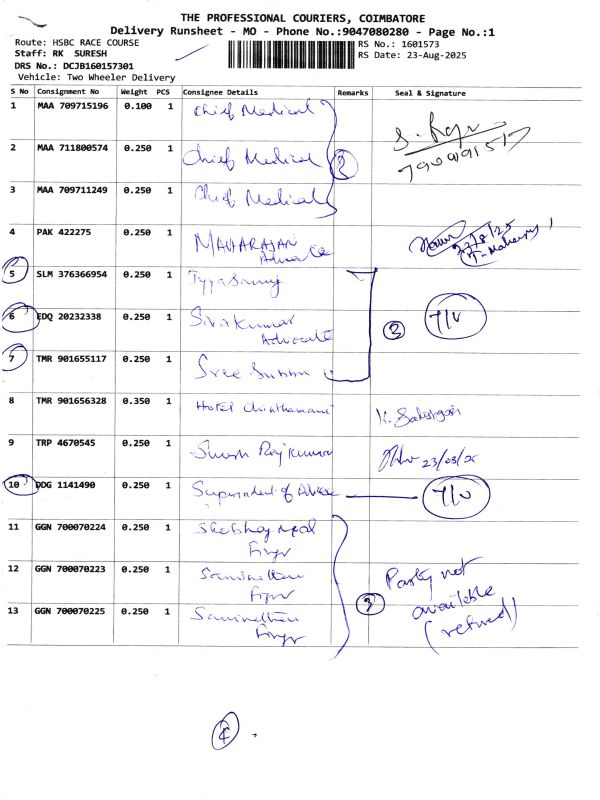 THE PROFESSIONAL COURIERS, COIMBATORE
Delivery Runsheet - MO - Phone No.:9047080280 - Page No.:1
Route: HSBC RACE COURSE
RS No.: 1601573
Staff: RK SURESH
RS Date: 23-Aug-2025
DRS No.: DCJB160157301
Vehicle: Two Wheeler Delivery
S No Consignment No Weight PCS Consignee Details Remarks Seal & Signature
1 MAA 709715196 0.100 1 Chief Medical
2 MAA 711800574 0.250 1 Chief Medical
3 MAA 709711249 0.250 1 Chief Medical
4 PAK 422275 0.250 1 MAHARAJAN
Advocate
5 SLM 376366954 0.250 1
6 EDQ 20232338 0.250 1 Sivakumar
Advocate
3 T/V
7 TMR 901655117 0.250 1 Sree
8 TMR 901656328 0.350 1 Hotel Chinthamani
9 TRP 4670545 0.250 1 Rajkumar 23/08/25
10 DDG 1141490 0.250 1 T/V
11 GGN 700070224 0.250 1
12 GGN 700070223 0.250 1
13 GGN 700070225 0.250 1
3 Party not
available